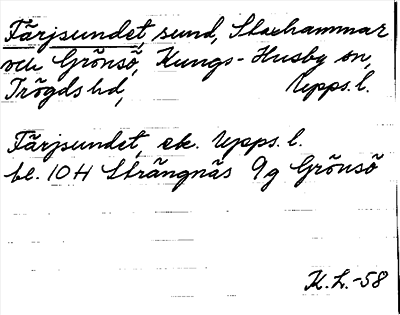 Färjsundet, sund, Slaghammar
och Grönsö, Kungs-Husby sn,
Trögds hd, Upps. l.
Färjsundet, ek. Upps. l.
bl. 10H Strängnäs 9g Grönsö
K.L.-58